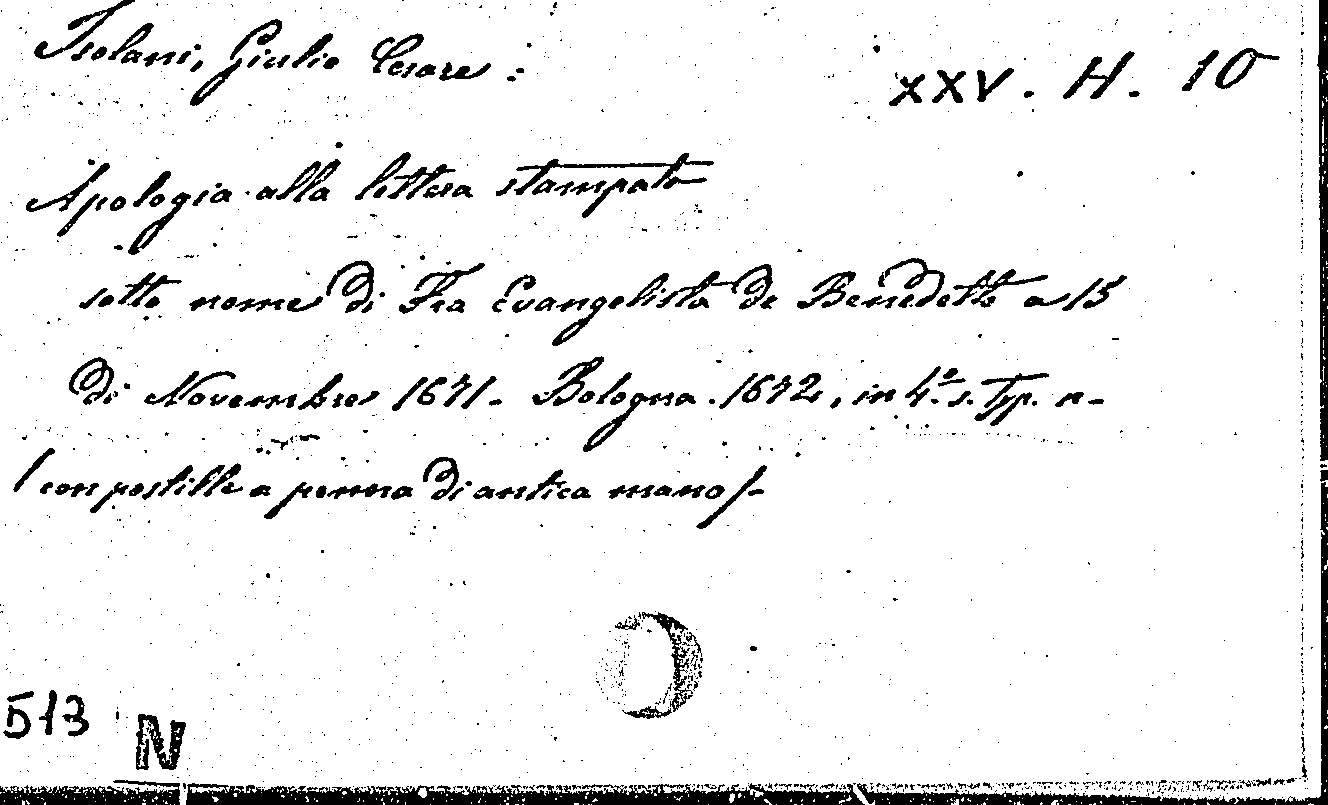 Isolani, Giulio Cesare :
XXV. H. 10
Apologia alla lettera stampata
sotto nome di Fra Evangelista de Benedetto a 15
di Novembre 1671. Bologna. 1672, in 4.º s. Typ. n-
(con postille a penna di antica mano)-
513
N